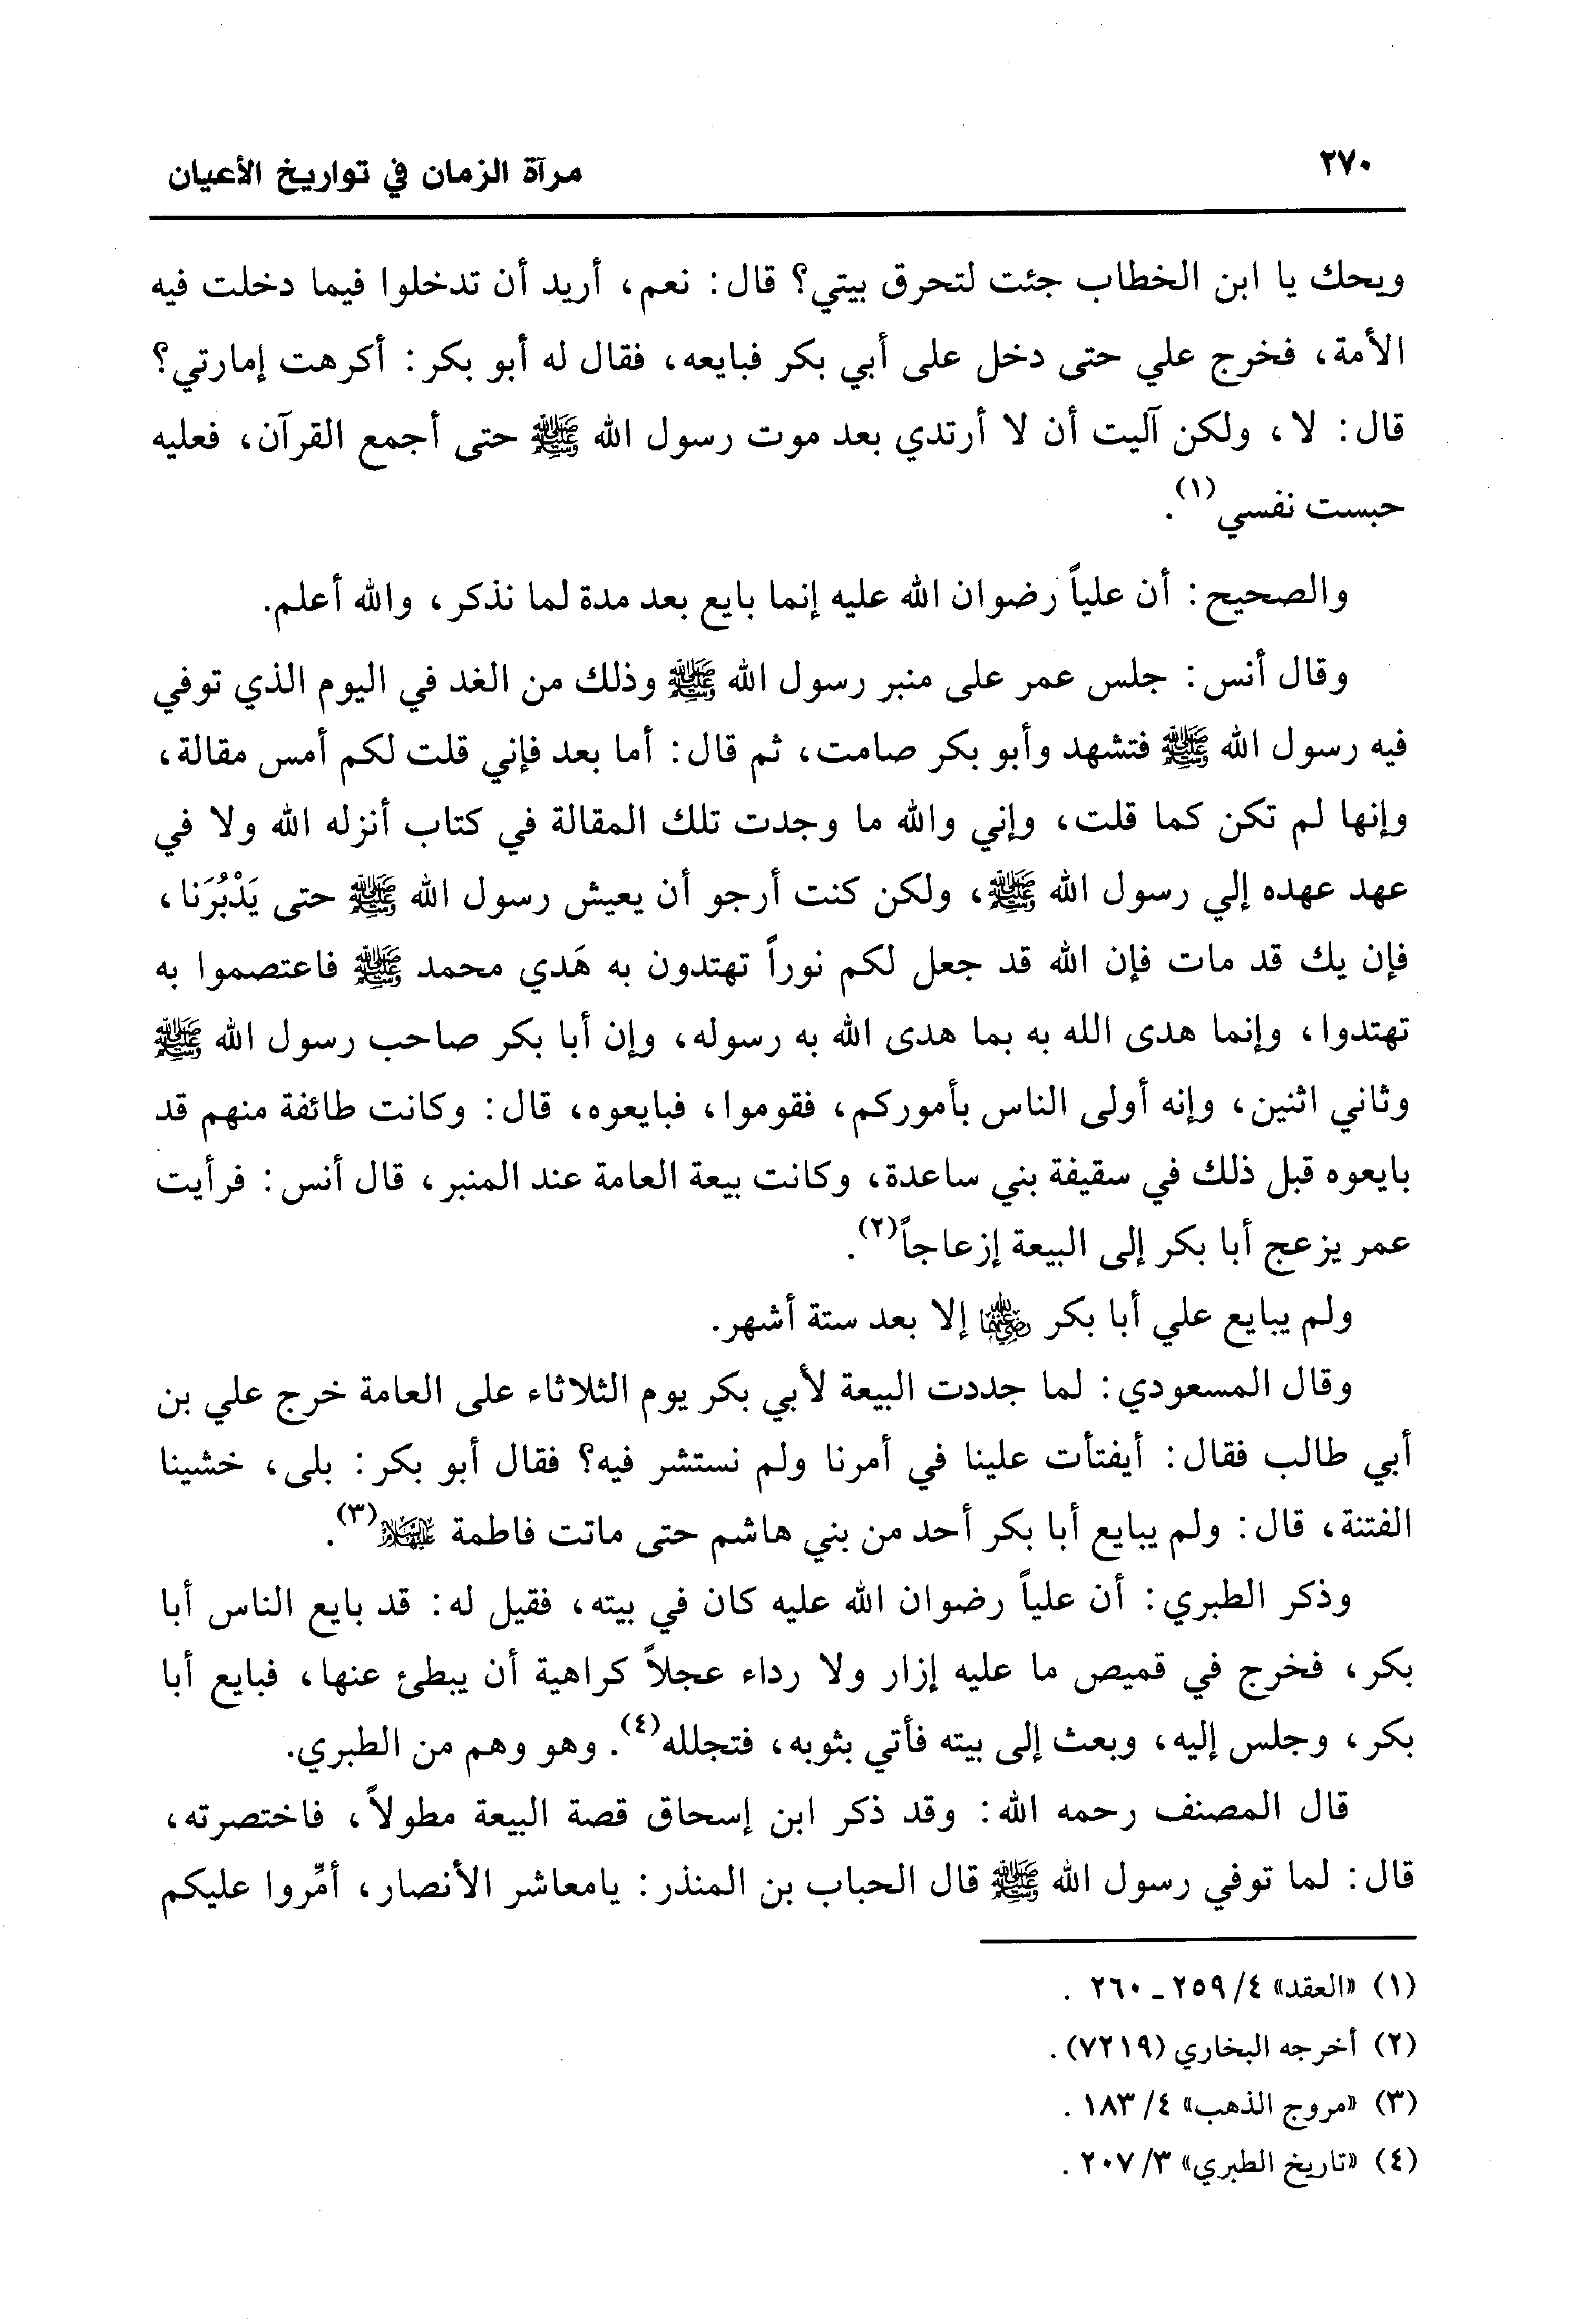 ٢٧٠
مرآة الزمان في تواريخ الأعيان
ويحك يا ابن الخطاب جئت لتحرق بيتي؟ قال: نعم، أريد أن تدخلوا فيما دخلت فيه
الأمة، فخرج علي حتى دخل على أبي بكر فبايعه، فقال له أبو بكر: أكرهت إمارتي؟
قال: لا، ولكن آليت أن لا أرتدي بعد موت رسول الله ﷺ حتى أجمع القرآن، فعليه
حبست نفسي(١).
والصحيح: أن علياً رضوان الله عليه إنما بايع بعد مدة لما نذكر، والله أعلم.
وقال أنس: جلس عمر على منبر رسول الله ﷺ وذلك من الغد في اليوم الذي توفي
فيه رسول الله ﷺ فتشهد وأبو بكر صامت، ثم قال: أما بعد فإني قلت لكم أمس مقالة،
وإنها لم تكن كما قلت، وإني والله ما وجدت تلك المقالة في كتاب أنزله الله ولا في
عهد عهده إلي رسول الله ﷺ، ولكن كنت أرجو أن يعيش رسول الله ﷺ حتى يَدْبُرَنا،
فإن يك قد مات فإن الله قد جعل لكم نوراً تهتدون به هَدي محمد ﷺ فاعتصموا به
تهتدوا، وإنما هدى الله به بما هدى الله به رسوله، وإن أبا بكر صاحب رسول الله ﷺ
وثاني اثنين، وإنه أولى الناس بأموركم، فقوموا، فبايعوه، قال: وكانت طائفة منهم قد
بايعوه قبل ذلك في سقيفة بني ساعدة، وكانت بيعة العامة عند المنبر، قال أنس: فرأيت
عمر يزعج أبا بكر إلى البيعة إزعاجاً(٢).
ولم يبايع علي أبا بكر رضي الله عنهما إلا بعد ستة أشهر.
وقال المسعودي: لما جددت البيعة لأبي بكر يوم الثلاثاء على العامة خرج علي بن
أبي طالب فقال: أيفتأت علينا في أمرنا ولم نستشر فيه؟ فقال أبو بكر: بلى، خشينا
الفتنة، قال: ولم يبايع أبا بكر أحد من بني هاشم حتى ماتت فاطمة عليها السلام(٣).
وذكر الطبري: أن علياً رضوان الله عليه كان في بيته، فقيل له: قد بايع الناس أبا
بكر، فخرج في قميص ما عليه إزار ولا رداء عجلاً كراهية أن يبطئ عنها، فبايع أبا
بكر، وجلس إليه، وبعث إلى بيته فأتي بثوبه، فتجلله(٤). وهو وهم من الطبري.
قال المصنف رحمه الله: وقد ذكر ابن إسحاق قصة البيعة مطولاً، فاختصرته،
قال: لما توفي رسول الله ﷺ قال الحباب بن المنذر: يامعاشر الأنصار، أمِّروا عليكم
(١) «العقد» ٤/ ٢٥٩ ـ ٢٦٠ .
(٢) أخرجه البخاري (٧٢١٩).
(٣) «مروج الذهب» ٤/ ١٨٣ .
(٤) «تاريخ الطبري» ٣/ ٢٠٧ .